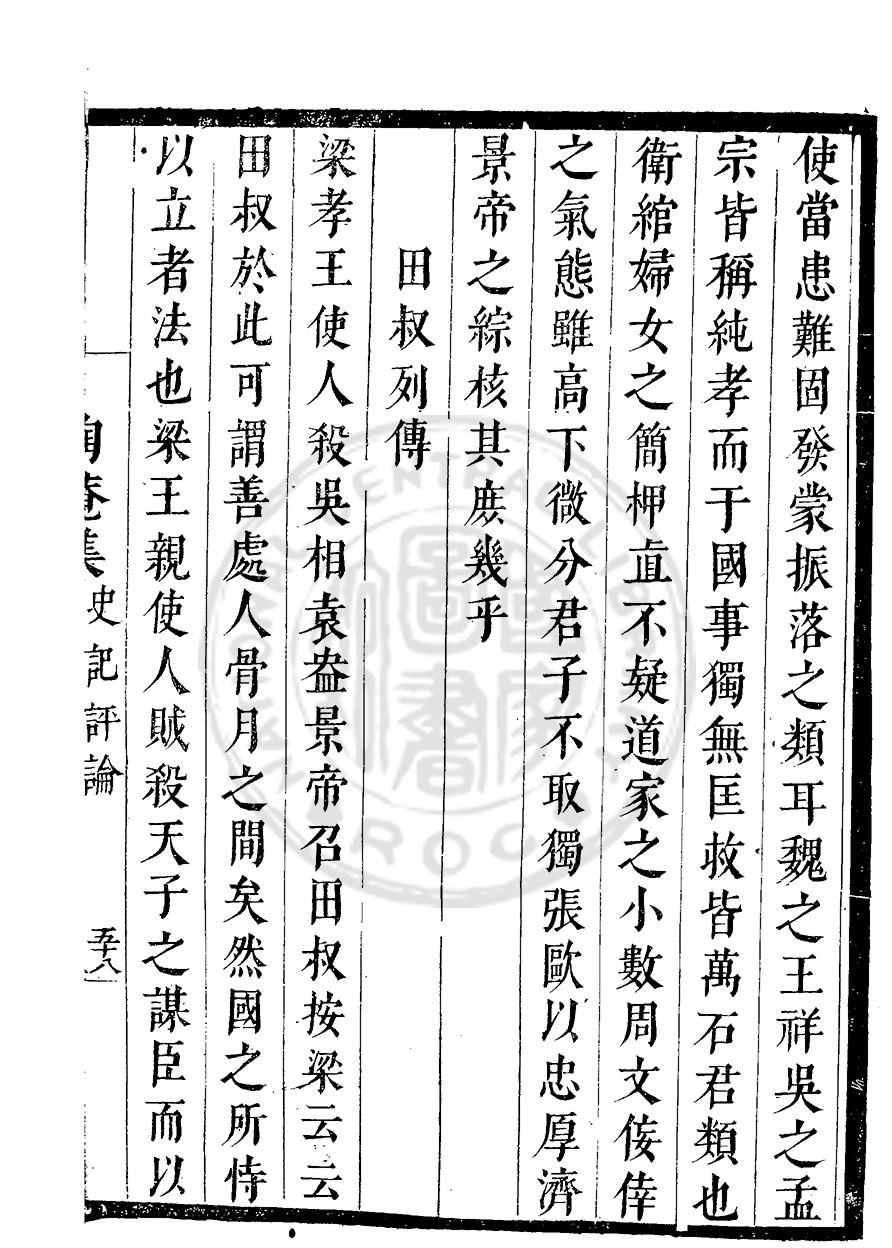 使當患難固發蒙振落之類耳魏之王祥吳之孟
宗皆稱純孝而于國事獨無匡救皆萬石君類也
衛綰婦女之簡柙直不疑道家之小數周文佞倖
之氣態雖高下微分君子不取獨張歐以忠厚濟
景帝之綜核其庶幾乎
田叔列傳
梁孝王使人殺吳相袁盎景帝召田叔按梁云云
田叔於此可謂善處人骨月之間矣然國之所恃
以立者法也梁王親使人賊殺天子之謀臣而以
陶菴集 史記評論 五十八